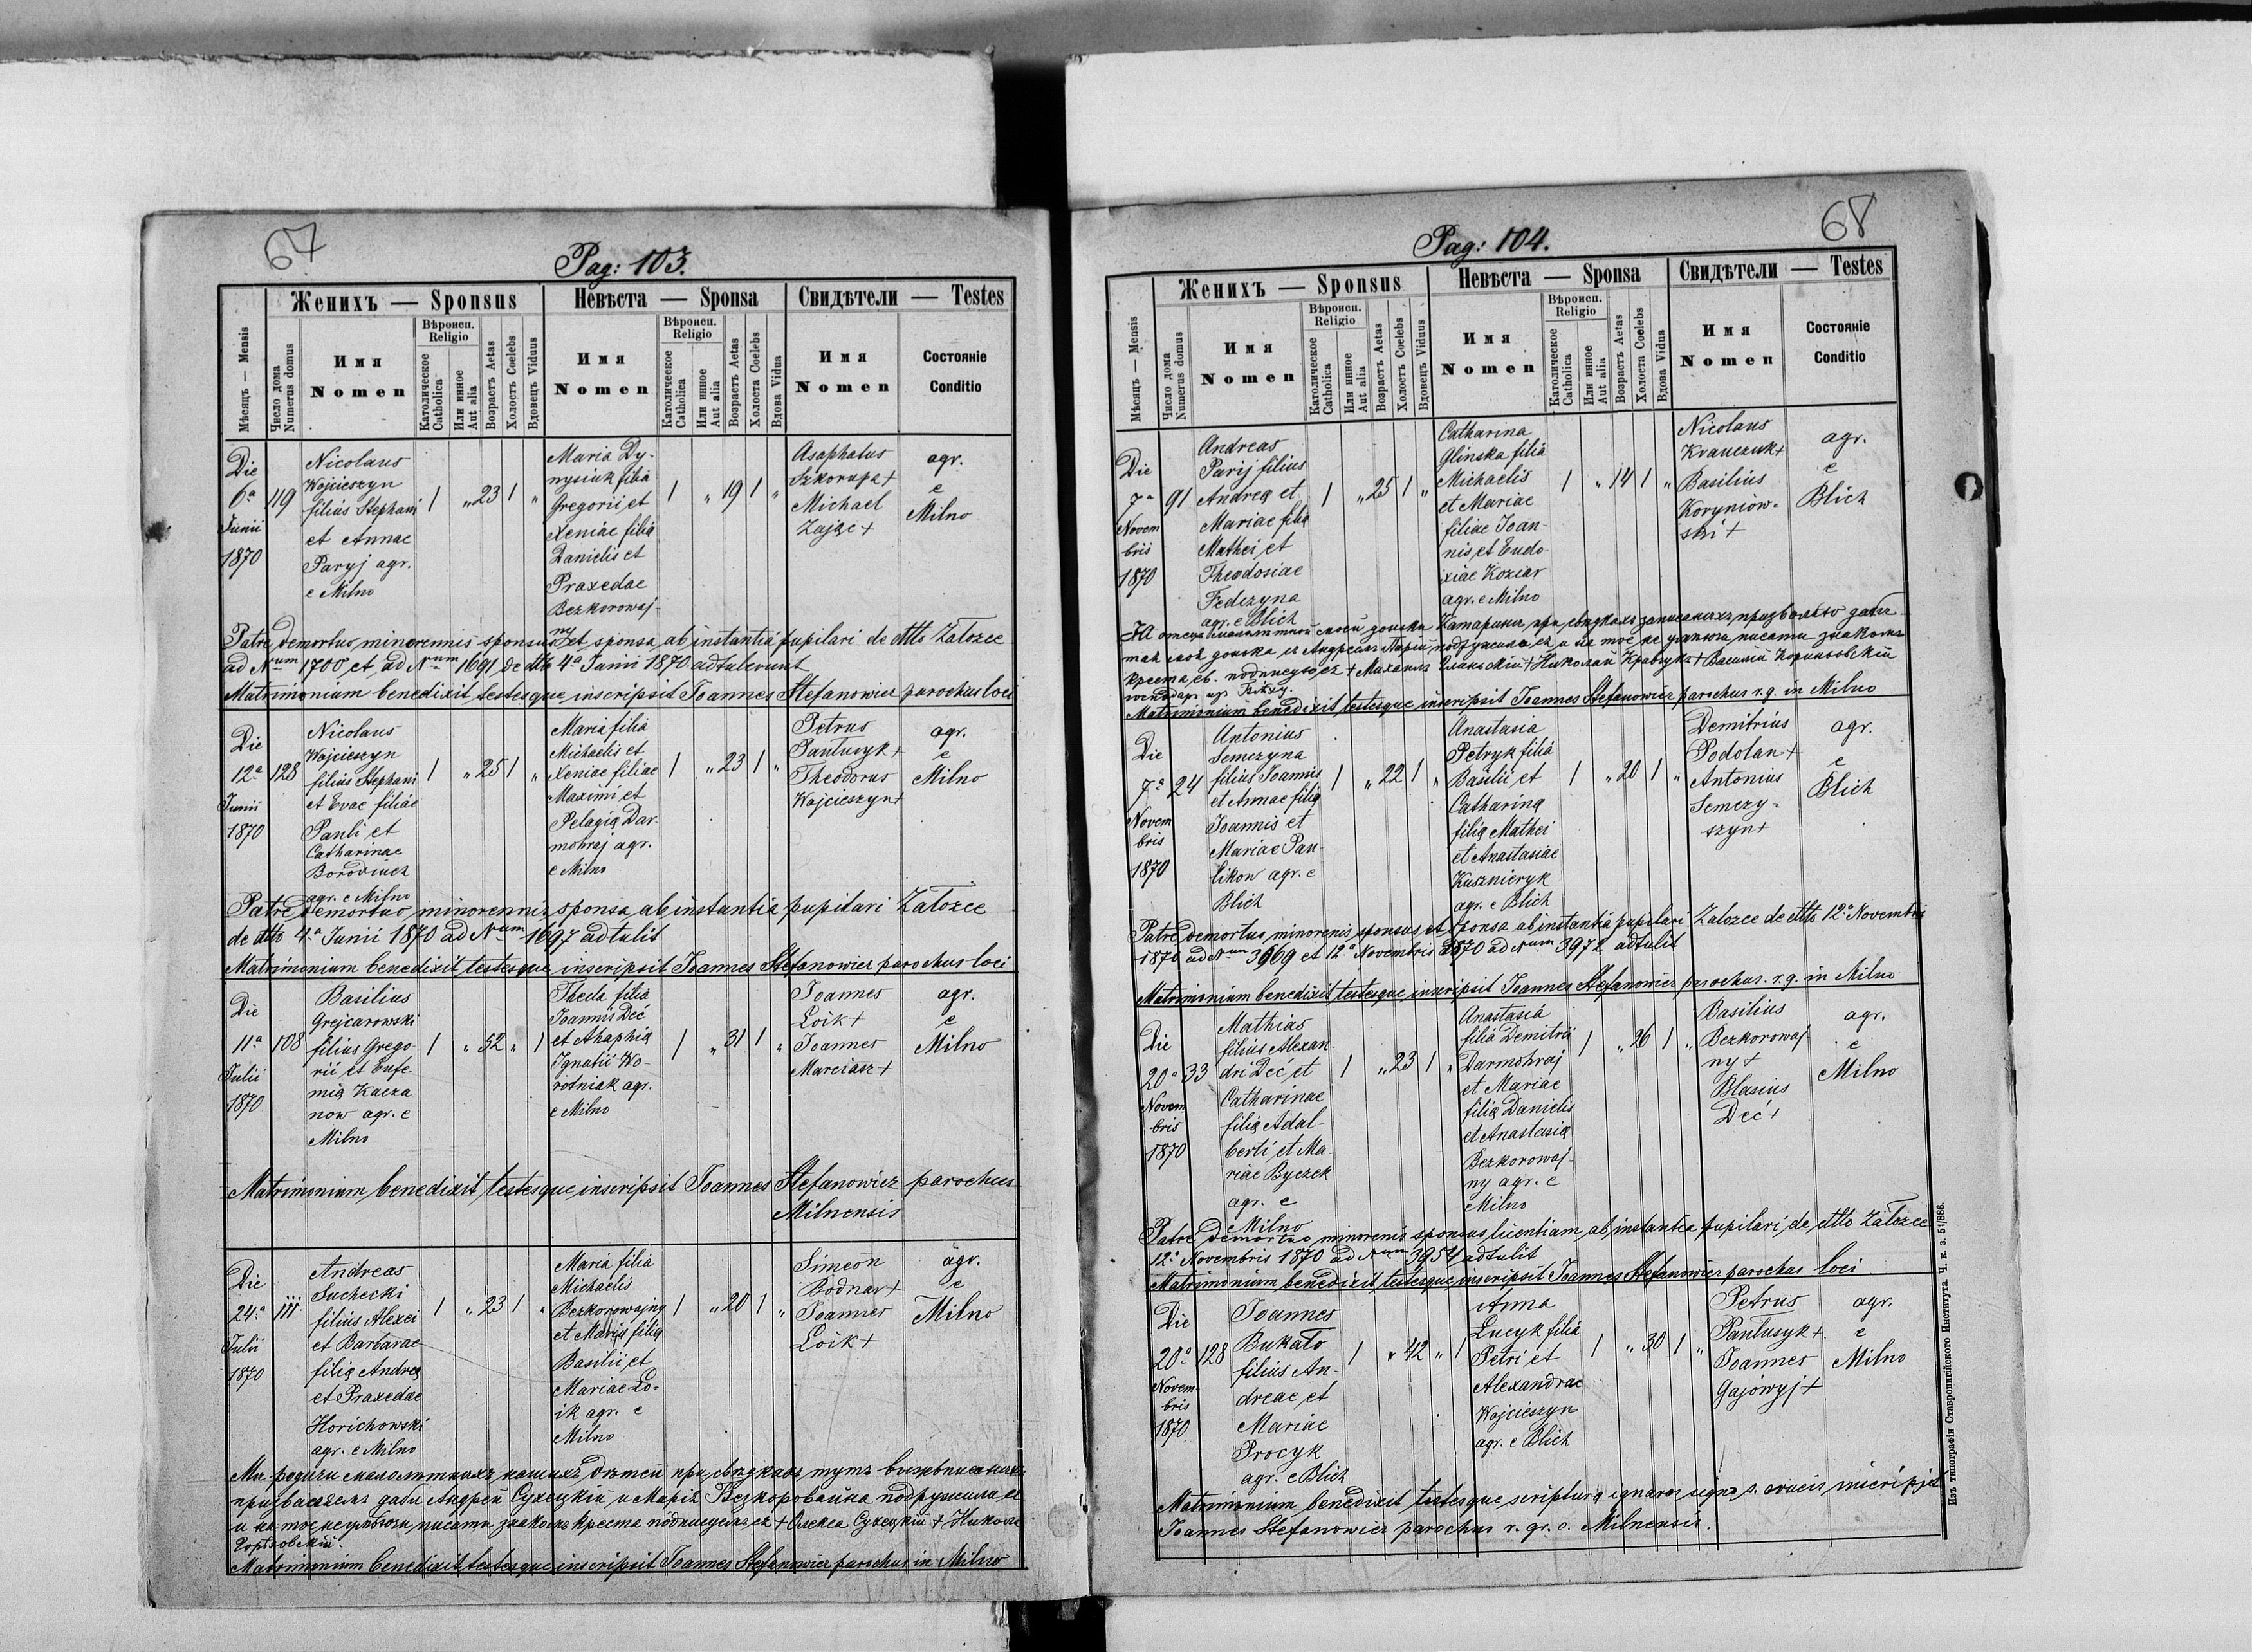 67
Pag: 103.
Женихъ — Sponsus
Невѣста — Sponsa
Свидѣтели — Testes
Мѣсяцъ — Mensis
Число дома
Numerus domus
Имя
Nomen
Вѣроисп.
Religio
Католическое
Catholica
Или инное
Aut alia
Возрастъ Aetas
Холостъ Coelebs
Вдовецъ Viduus
Имя
Nomen
Вѣроисп.
Religio
Католическое
Catholica
Или инное
Aut alia
Возрастъ Aetas
Холоста Coelebs
Вдова Vidua
Имя
Nomen
Состояніе
Conditio
Die
6a
Junii
1870
119
Nicolaus
Wojcieszyn
filius Stephani
et Annae
Paryj agr.
e Milno
1 „ 23 1 „
Maria Dy-
nysiuk filia
Gregorii et
Xeniae filia
Danielis et
Praxedae
Bezkorowaj-
ny
1 „ 19 1 „
Asaphatus
Szkorupa +
Michael
Zając +
agr.
e
Milno
Patre demortuo minorennis sponsus et sponsa ab instantiâ pupilari de dtto Załozce
ad Num 1700 et ad Num 1691 de dtto 4a Junii 1870 adtulerunt
Matrimonium benedixit, testesque inscripsit Joannes Stefanowicz parochus loci
Die
12a
Junii
1870
128
Nicolaus
Wojcieszyn
filius Stephani
et Evae filiae
Pauli et
Catharinae
Borodziuch
agr. e Milno
1 „ 25 1 „
Maria filia
Michaelis et
Xeniae filiae
Maximi et
Pelagia Dar-
mohraj agr.
e Milno
1 „ 23 1 „
Petrus
Pantusyk +
Theodorus
Wojcieszyn +
agr.
e
Milno
Patre demortuo minorennis sponsa ab instantia pupilari Załozce
de dtto 4.a Junii 1870 ad Num 1697 adtulit
Matrimonium benedixit testesque inscripsit Joannes Stefanowicz parochus loci
Die
11a
Julii
1870
108
Basilius
Grejcarowski
filius Grego-
rii et Eufe-
mia Kacza
now agr. e
Milno
1 „ 52 „ 1
Thecla filia
Joannis Deć
et Ahaphia
Ignatii Wo-
rotniak agr.
e Milno
1 „ 31 1 „
Joannes
Loik +
Joannes
Marciasz +
agr.
e
Milno
Matrimonium benedixit, testesque inscripsit Joannes Stefanowicz parochus
Milnensis
Die
24.a
Julii
1870
111
Andreas
Suchecki
filius Alexei
et Barbarae
filia Andrea
et Praxedae
Horichowski
agr. e Milno
1 „ 23 1 „
Maria filia
Michaelis
Bezkorowajny
et Maria filia
Basilii et
Mariae Lo-
ik agr. e
Milno
1 „ 20 1 „
Simeon
Bodnar +
Joannes
Loik +
agr.
e
Milno
Мы родичи малолѣтныхъ нашихъ дѣтей при свѣдкахъ тутъ
дабы Андрей Сухецкій и Марія Безкоровайна подружила ся
и на тое не писати знакомъ креста подписуемъ ся + Олекса Сухецкій + Никола
Matrimonium benedixit testesque inscripsit Joannes Stefanowicz parochus in Milno
68
Pag: 104.
Женихъ — Sponsus
Невѣста — Sponsa
Свидѣтели — Testes
Мѣсяцъ — Mensis
Число дома
Numerus domus
Имя
Nomen
Вѣроисп.
Religio
Католическое
Catholica
Или инное
Aut alia
Возрастъ Aetas
Холостъ Coelebs
Вдовецъ Viduus
Имя
Nomen
Вѣроисп.
Religio
Католическое
Catholica
Или инное
Aut alia
Возрастъ Aetas
Холоста Coelebs
Вдова Vidua
Имя
Nomen
Состояніе
Conditio
Die
7a
Novem
bris
1870
91
Andreas
Parij filius
Andrea et
Mariae filia
Mathei et
Theodosiae
Fedczyna
agr. e Blich
1 „ 25 1 „
Catharina
Glinska filia
Michaelis
et Mariae
filiae Joan-
nis et Eudo-
xiae Koziar
agr. e Milno
1 „ 14 1 „
Nicolaus
Krawczuk +
Basilius
Koryniow-
ski +
agr.
e
Blich
Я отець моей доньки Катарины при свѣдкахъ записанахъ призволяю дабы
моя донька съ Андреемъ Парій подружила ся и на тое не писати знакомъ
креста св. подписую ся + Михаилъ Глиньскій + Николай Кравчукъ + Василій Кориньовскій
Matrimonium benedixit, testesque inscripsit Joannes Stefanowicz parochus r. g. in Milno
Die
7a
Novem
bris
1870
24
Antonius
Semczyna
filius Joannis
et Annae filia
Joannis et
Mariae Pau-
likow agr. e
Blich
1 „ 22 1 „
Anastasia
Petryk filia
Basilii et
Catharina
filia Mathei
et Anastasiae
Kusznieryk
agr. e Blich
1 „ 20 1 „
Demitrius
Podolan +
Antonius
Semczy-
szyn +
agr.
e
Blich
Patre demortuo minorenis sponsus et sponsa ab instantiâ pupilari Załozce de dtto 12.a Novembris
1870 ad Num 3969 et 12a Novembris 1870 ad Num 3972 adtulit
Matrimonium benedixit, testesque inscripsit Joannes Stefanowicz parochus. r. g. in Milno
Die
20a
Novem
bris
1870
33
Mathias
filius Alexan-
dri Dec et
Catharinae
filia Adal-
berti et Ma-
riae Byczek
agr. e
Milno
1 „ 23 1 „
Anastasia
filia Demitrii
Darmohraj
et Mariae
filia Danielis
et Anastasia
Bezkorowaj-
ny agr. e
Milno
1 „ 26 1 „
Basilius
Bezkorowaj-
ny +
Blasius
Deć +
agr.
e
Milno
Patre demortuo minorenis sponsus licentiam ab instantia pupilari de dtto Załozce
12.a Novembris 1870 ad Num 3954 adtulit
Matrimonium benedixit testesque inscripsit Joannes Stefanowicz parochus loci
Die
20a
Novem-
bris
1870
128
Joannes
Bukato
filius An-
dreae et
Mariae
Procyk
agr. e Blich
1 „ 42 „ 1
Anna
Lucyk filia
Petri et
Alexandrae
Wojcieszyn
agr. e Blich
1 „ 30 1 „
Petrus
Pantusyk +
Joannes
Gajowyj +
agr.
e
Milno
Matrimonium benedixit testesque scriptura ignaros signo s. crucis inscripsit
Joannes Stefanowicz parochus r. gr. c. Milnensis.
Изъ типографіи Ставропигійского Института. Ч. к. з. 51/886.